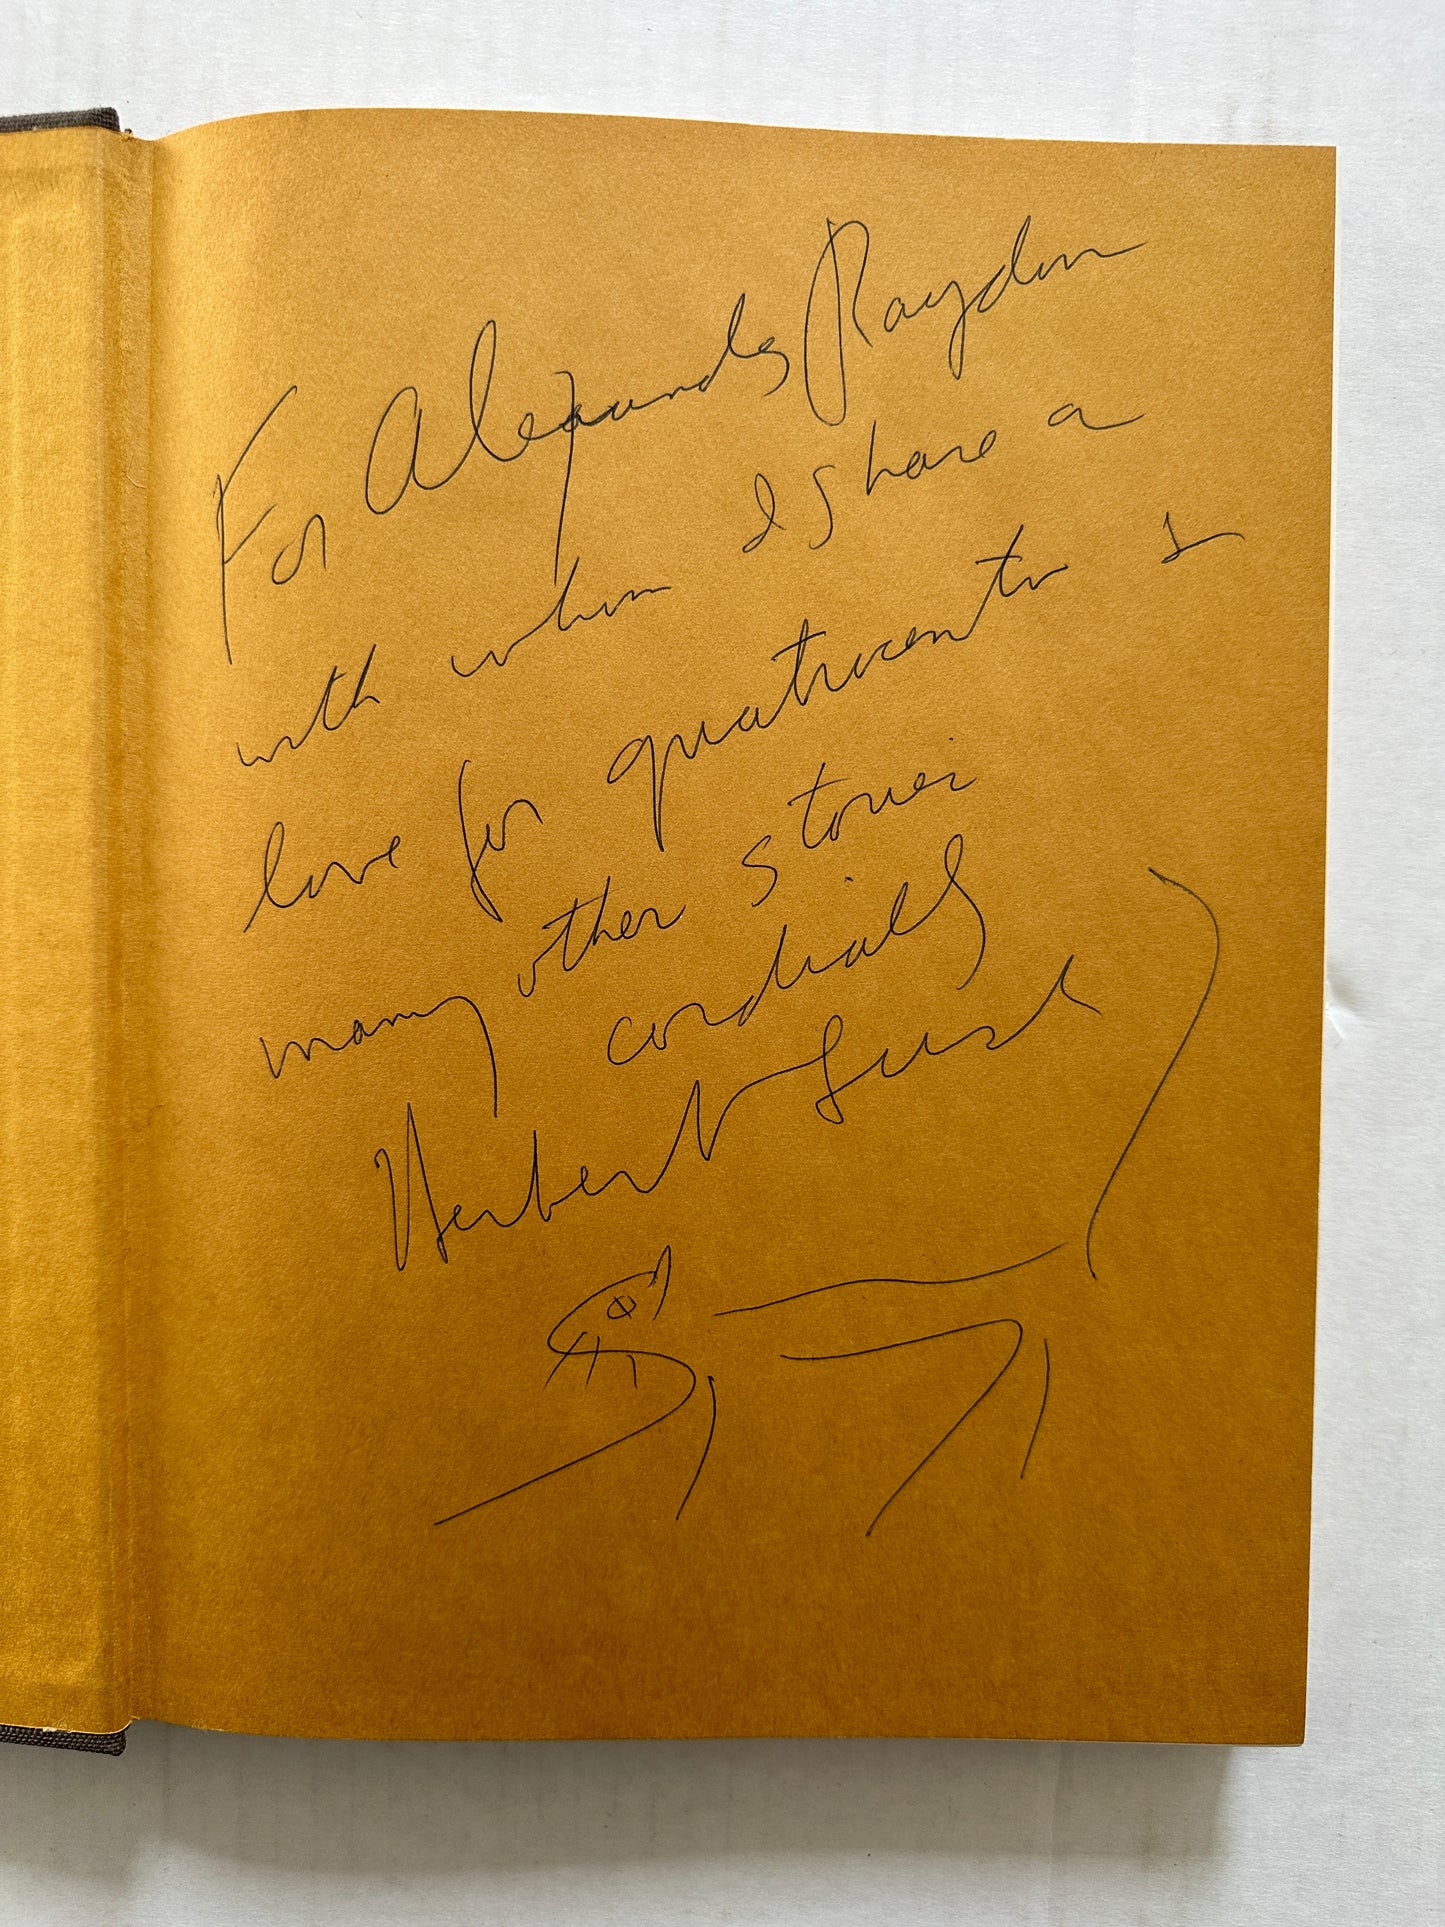 For Alexander Raydon
with whom I share a
love for quatrocento &
many other stories
cordially
Herbert Lust